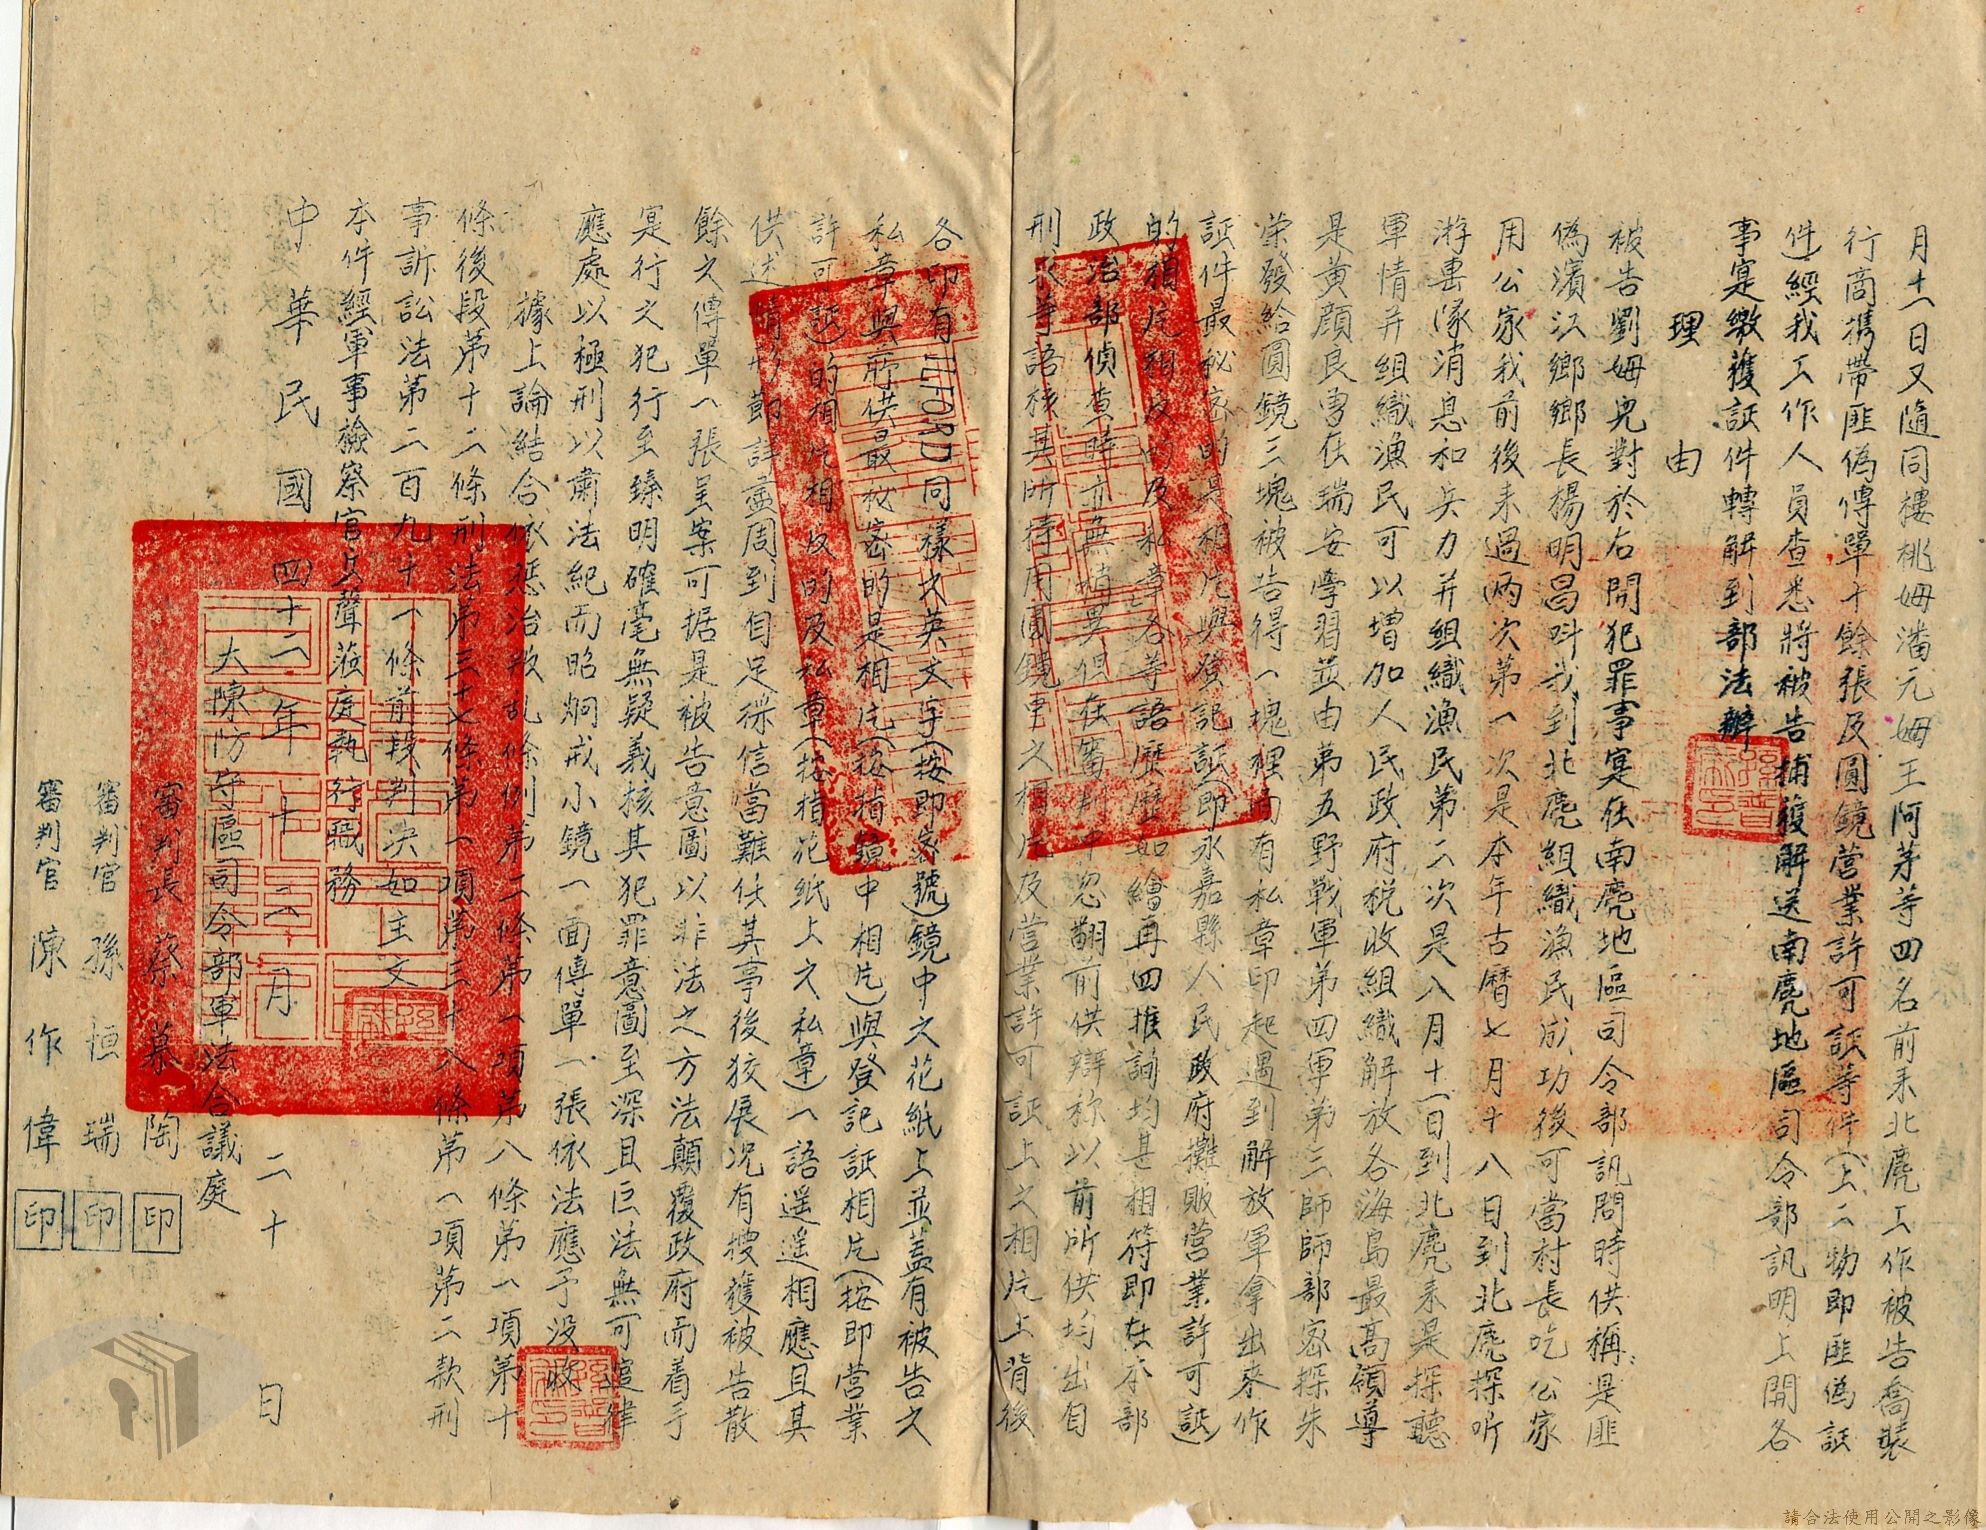 月十一日又隨同樓桃姆潘元姆王阿芽等四名前来北麂工作被告喬裝
行商攜帶匪偽傳單十餘張及圓鏡營業許可証等件(上二物即匪偽証
件)經我工作人員查悉將被告捕獲解送南麂地區司令部訊明上開各
事寔繳獲証件轉解到部法辦
理由
被告劉姆兒對於右開犯罪事寔在南麂地區司令部訊問時供稱:是匪
偽濱江鄉鄉長楊明昌叫我到北麂組織漁民成功後可當村長吃公家
用公家我前後来過兩次第一次是本年古曆七月十八日到北麂探听
游击隊消息和兵力并組織漁民第二次是八月十一日到北麂来是探聽
軍情并組織漁民可以增加人民政府税收組織解放各海島最高領導
是黄顏良曾在瑞安學習並由第五野戰軍第四軍第三師師部密探朱
荣發給圓鏡三塊被告得一塊裡面有私章印起遇到解放軍拿出來作
証件最秘密的是相片與登記証(即永嘉縣人民政府攤販營業許可証)
的相片相反的及私章各等語歷歷如繪再四推詢均甚相符即在本部
政治部偵查時亦無稍異俱在審判中忽翻前供辯称以前所供均出自
刑求等語核其所持用圓鏡中之相片及營業許可証上之相片上背後
各印有ILFORD同樣之英文字(按即密號)鏡中之花紙上並蓋有被告之
私章與前供最秘密的是相片(按指鏡中相片)與登記証相片(按即營業
許可証)的相片相反的及私章(按指花紙上之私章)一語遥遥相應且其
供述情形節詳盡周到自足徵信當難任其事後狡展况有搜獲被告散
餘之傳單一張呈案可据是被告意圖以非法之方法顛覆政府而着手
寔行之犯行至臻明確毫無疑義核其犯罪意圖至深且巨法無可逭律
應處以極刑以肅法紀而昭炯戒小鏡一面傳單一張依法應予没收
據上論結合依惩治叛乱條例第二條第一項第八條第一項第十
條後段第十二條刑法第三十七條第一項第三十八條第一項第二款刑
事訴訟法第二百九十一條前段判决如主文
本件經軍事檢察官吳聲蒞庭執行職務
中華民國四十二年十二月二十日
大陳防守區司令部軍法合議庭
審判長蔡慕陶印
審判官孫恒瑞印
審判官陳作偉印
請合法使用公開之影像